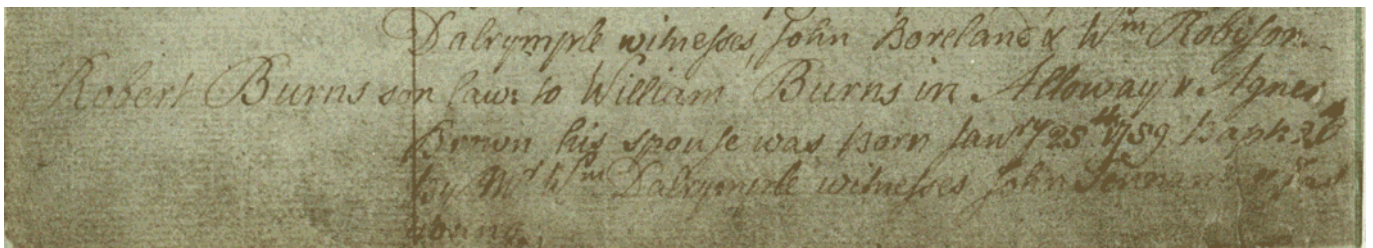 Dalrymple witnesses John Boreland & Wm Robison
Robert Burns son law: to William Burns in Alloway & Agnes
Brown his spouse was Born Janry 25th 1759 bapt. 26
by Mr Wm Dalrymple witnesses John Tennant & Jas
young